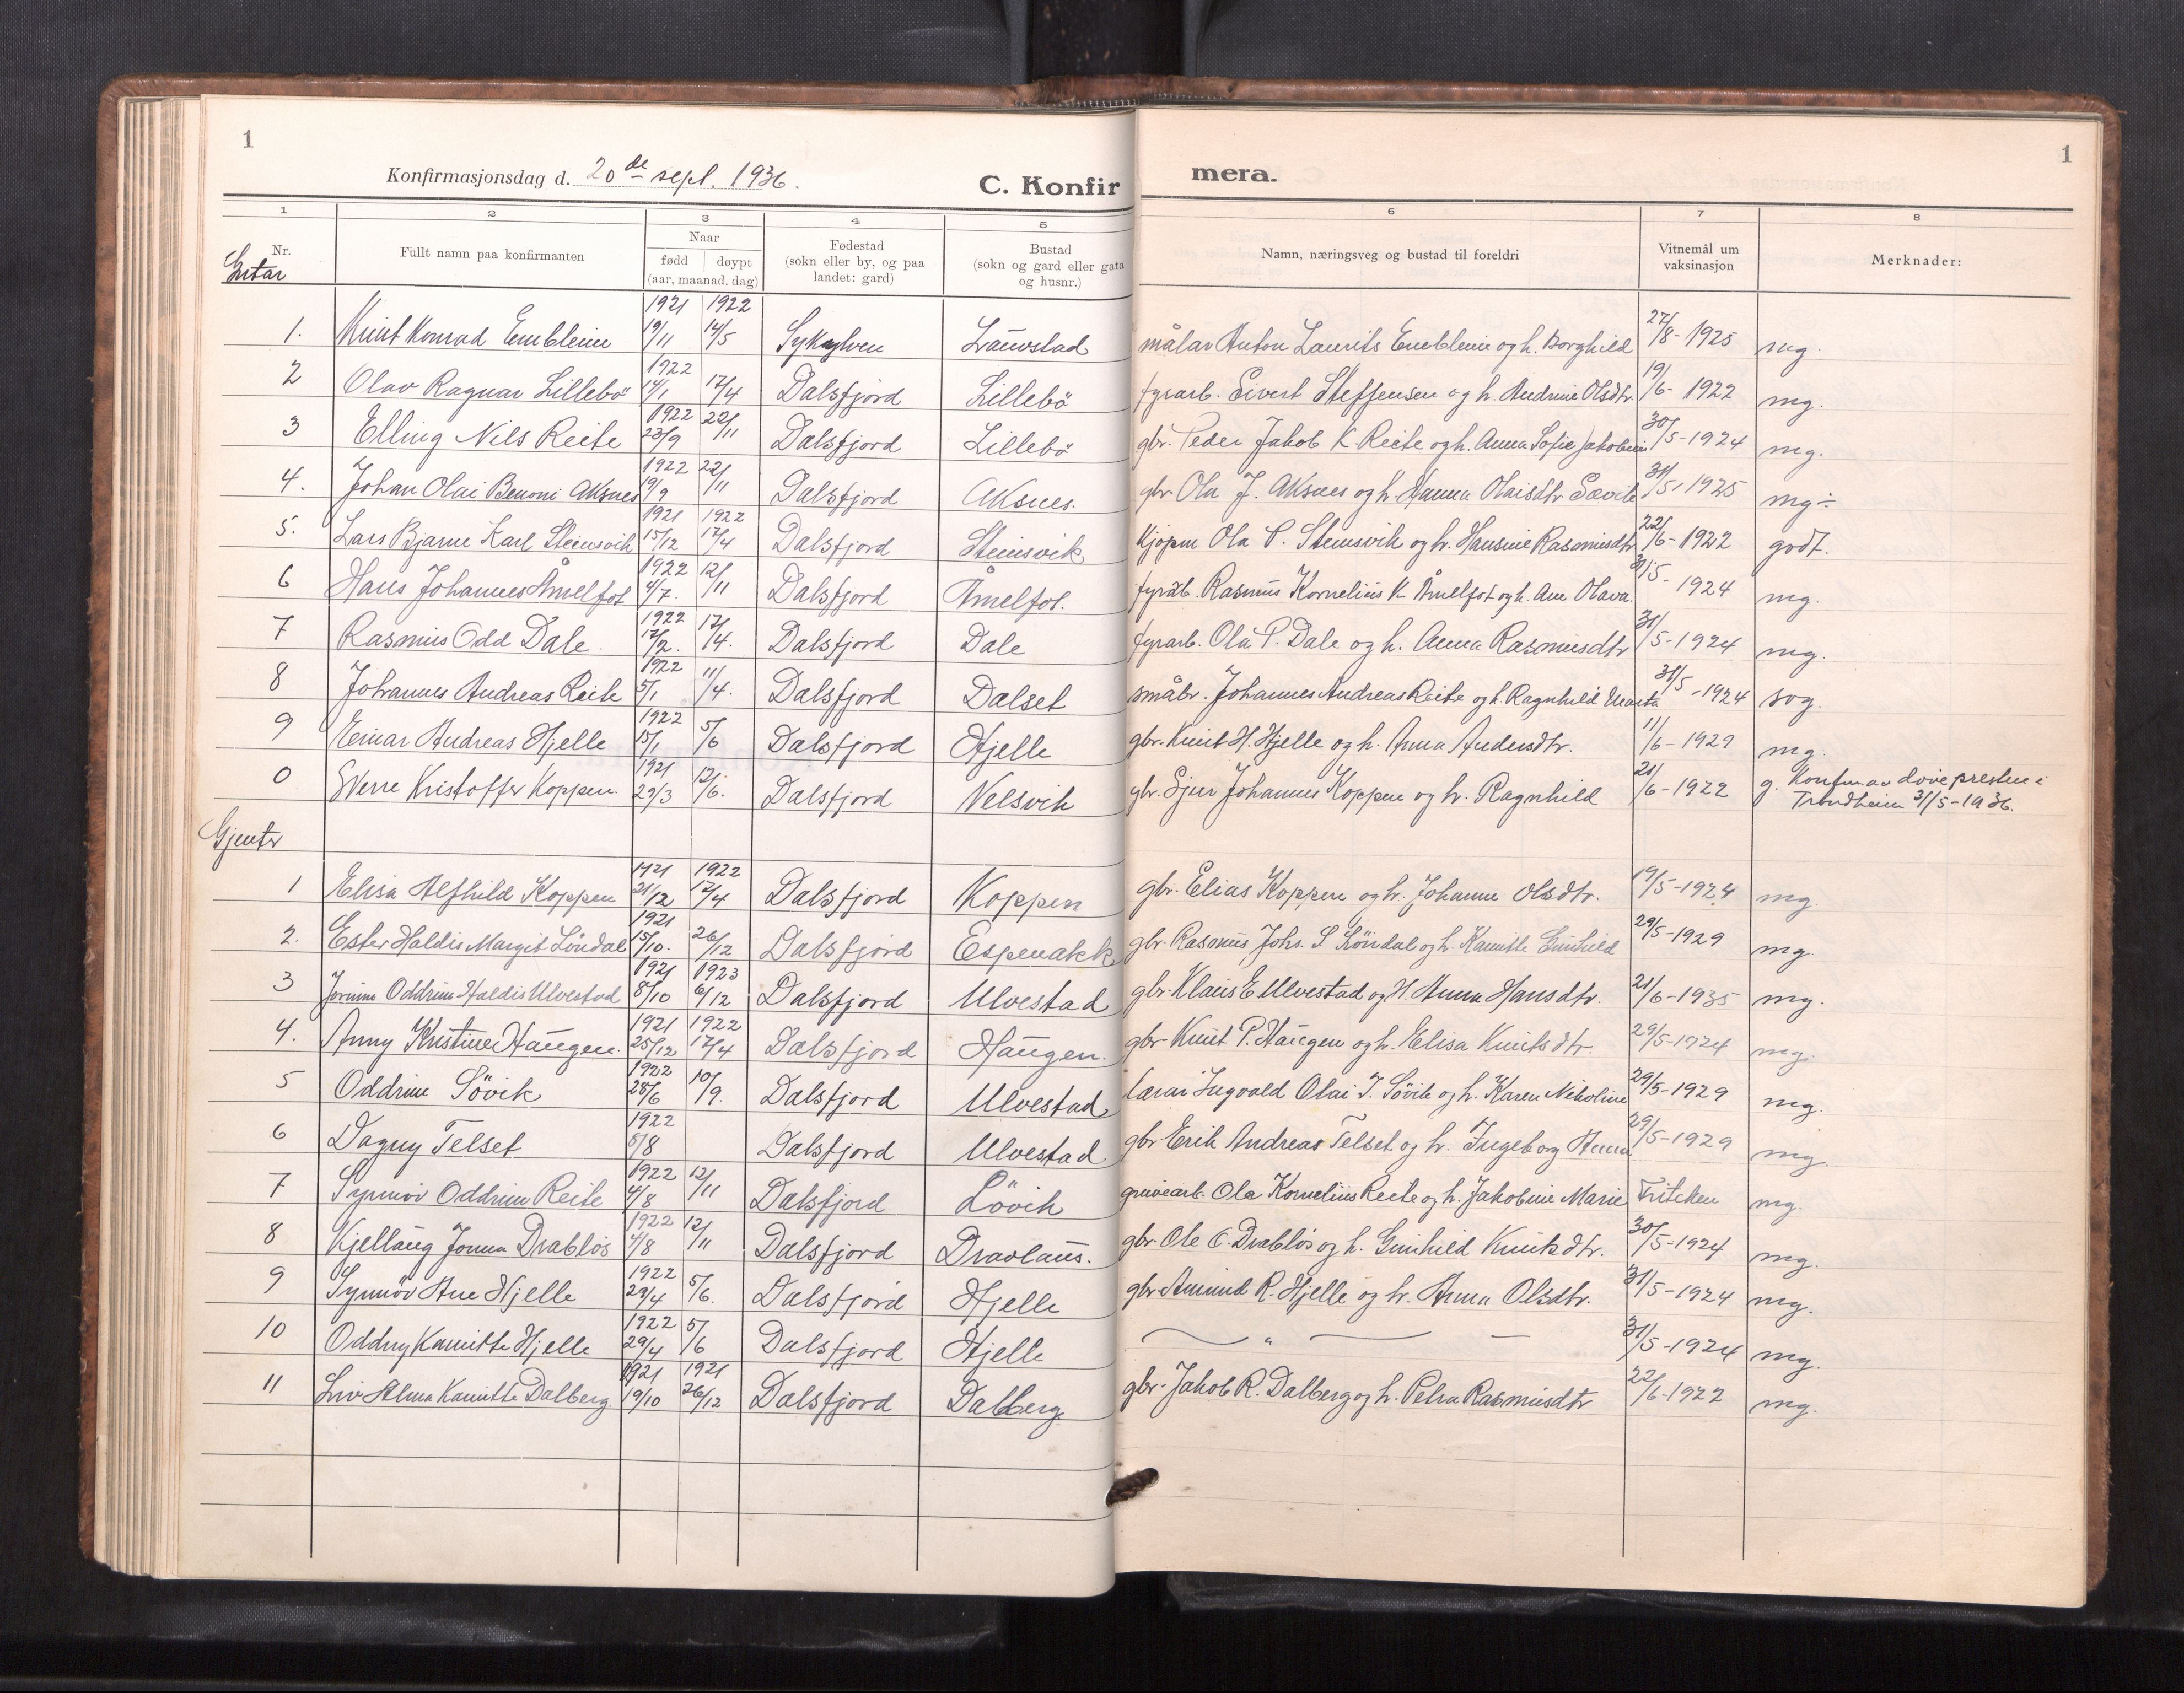 1
1
Konfirmasjonsdag d. 20de sept. 1936.
C. Konfirmera.
1 2 3 4 5 6 7 8
Nr.
Gutar
Fullt namn paa konfirmanten
Naar
fødd døypt
(aar, maanad, dag)
Fødestad
(sokn eller by, og paa
landet: gard)
Bustad
(sokn og gard eller gata
og husnr.)
Namn, næringsveg og bustad til foreldri
Vitnemål um
vaksinasjon
Merknader:
1921 1922
1. Knut Konrad Emblem 19/11 14/5 Sykkylven Lauvstad målar Anton Laurits Emblem og h. Borghild 27/8-1925 mg.
1922
2 Olav Ragnar Lillebö 14/1 17/4 Dalsfjord Lillebö fyrarb. Sivert Steffensen og h. Andrine Olsdtr. 19/6-1922 mg.
1922
3 Elling Nils Reite 23/9 22/11 Dalsfjord Lillebö gbr. Peder Jakob K Reite og h. Anna Sofie Jakobine 30/5-1924 mg.
1922
4. Johan Olai Benoni Aksnes 19/9 22/11 Dalsfjord Aksnes. gbr. Ola J. Aksnes og h. Hanna Olaisdtr Sævik 31/5-1925 mg÷
1921 1922
5. Lars Bjarne Karl Steinsvik 15/12 17/4 Dalsfjord Steinsvik Kjøpm Ola P. Steinsvik og h. Hansine Rasmusdtr 22/6-1922 godt.
1922
6 Hans Johannes Åmelfot 4/7. 12/11 Dalsfjord Åmelfot. fyrarb. Rasmus Kornelius K Åmelfot og h. Ane Olava. 31/5-1924 mg.
1922
7 Rasmus Odd Dale 17/2. 17/4. Dalsfjord Dale fyrarb. Ola P. Dale og h. Anna Rasmusdtr 31/5-1924 mg.
1922
8 Johannes Andreas Reite 5/1 11/4. Dalsfjord Dalset småbr. Johannes Andreas Reite og h. Ragnhild Marta 31/5-1924 sog.
1922
9 Einar Andreas Hjelle 15/1 5/6 Dalsfjord Hjelle gbr. Knut H. Hjelle og h. Anna Andersdtr. 11/6-1929 mg.
1921
0 Sverre Kristoffer Koppen. 29/3 12/6. Dalsfjord Velsvik gbr. Sjur Johannes Koppen og h. Ragnhild 21/6-1922 g. Konfm av døvepresten i
Trondheim 31/5-1936.
Gjenter
1921 1922
1 Elisa Alfhild Koppen 21/12 17/4 Dalsfjord Koppen gbr. Elias Koppen og h. Johanne Olsdtr. 19/5-1924 mg.
1921
2. Ester Haldis Margit Löndal 15/10. 26/12 Dalsfjord Espenakk gbr. Rasmus Johs. S Löndal og h. Kamilla Gunhild 29/5-1929 mg.
1921 1923
3 Jorunn Oddrun Haldis Ulvestad 8/10 6/12 Dalsfjord Ulvestad gbr. Klaus E Ulvestad og H Anna Hansdtr. 21/6-1935 mg.
1921 1922
4. Anny Kristine Haugen. 25/12 17/4 Dalsfjord Haugen. gbr Knut P. Haugen og h. Elisa Knutsdtr. 29/5-1924 mg.
1922
5 Oddrun Sövik 28/6 10/9. Dalsfjord Ulvestad lærar Ingvald Olai J. Sövik og h. Karen Nikoline 29/5-1929 mg.
1922
6 Dagny Telset 5/8 Dalsfjord Ulvestad gbr Erik Andreas Telset og h. Ingeborg Anna 29/5-1929 mg.
1922
7 Synnöv Oddrun Reite 4/8 12/11 Dalsfjord Lövik gruvearb. Ola Kornelius Reite og h. Jakobine Marie Friteken mg.
1922
8 Kjellaug Jonna Drablös 4/8 12/11 Dalsfjord Dravlaus. gbr Ole E. Drablös og h. Gunhild Knutsdtr. 30/5-1924 mg.
1922
9 Synnöv Ane Hjelle 29/4 5/6. Dalsfjord Hjelle gbr. Amund R. Hjelle og h. Anna Olsdtr. 31/5-1924 mg.
1922
10 Oddny Kamilla Hjelle 29/4 5/6 Dalsfjord Hjelle — " — — 31/5-1924 mg.
1921 1921
11 Liv Alma Kamilla Dalberg. 19/10 26/12 Dalsfjord Dalberg. gbr. Jakob R. Dalberg og h. Petra Rasmusdtr 22/6-1922 mg.